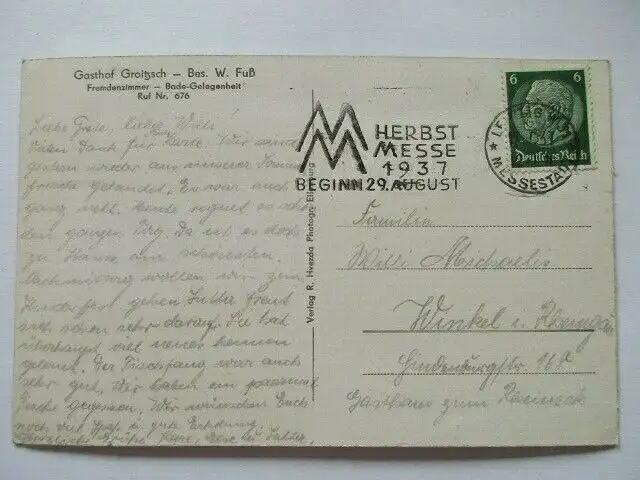 Gasthof Groitzsch – Bes. W. Fuß
Fremdenzimmer – Bade-Gelegenheit
Ruf Nr. 676
Liebe Grete, lieber Willi
Vielen Dank für Karte. Wir sind
gestern wieder aus unserer Sommer
frische gelandet. Es war auch
ganz nett. Heute regnet es schon
den ganzen Tag. Da ist es doch
zu Hause am schönsten.
Nachmittag wollen wir zum
Kinderfest gehen Jutta freut
sich schon sehr darauf. Sie hat
überhaupt viel neues kennen
gelernt. Der Fischfang war auch
sehr gut. Wir haben ein paarmal
Fische gegessen. Wir wünschen Euch
noch viel Spaß u. gute Erholung.
Herzliche Grüße Kurt, Else u. Jutta.
Verlag R. Hvezda Photogr. Eilenburg
MM HERBST
MESSE
1937
BEGINN 29. AUGUST
LEIPZIG
MESSESTADT
6 6
Deutsches Reich
Familie
Willi Michaelis
Winkel i. Rheingau
Hindenburgstr 168
Gasthaus zum Rheineck